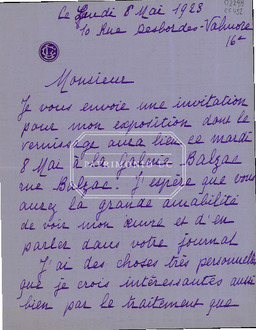 Ce Lundi 8 Mai 1923
10 Rue Desbordes-Valmore
16e
Monsieur
Je vous envoie une invitation
pour mon exposition dont le
vernissage aura lieu ce mardi
8 Mai à la Galerie Balzac
rue Balzac. J'espère que vous
aurez la grande amabilité
de voir mon œuvre et d'en
parler dans votre journal
J'ai des choses très personnelles
que je crois intéressantes aussi
bien par le traitement que